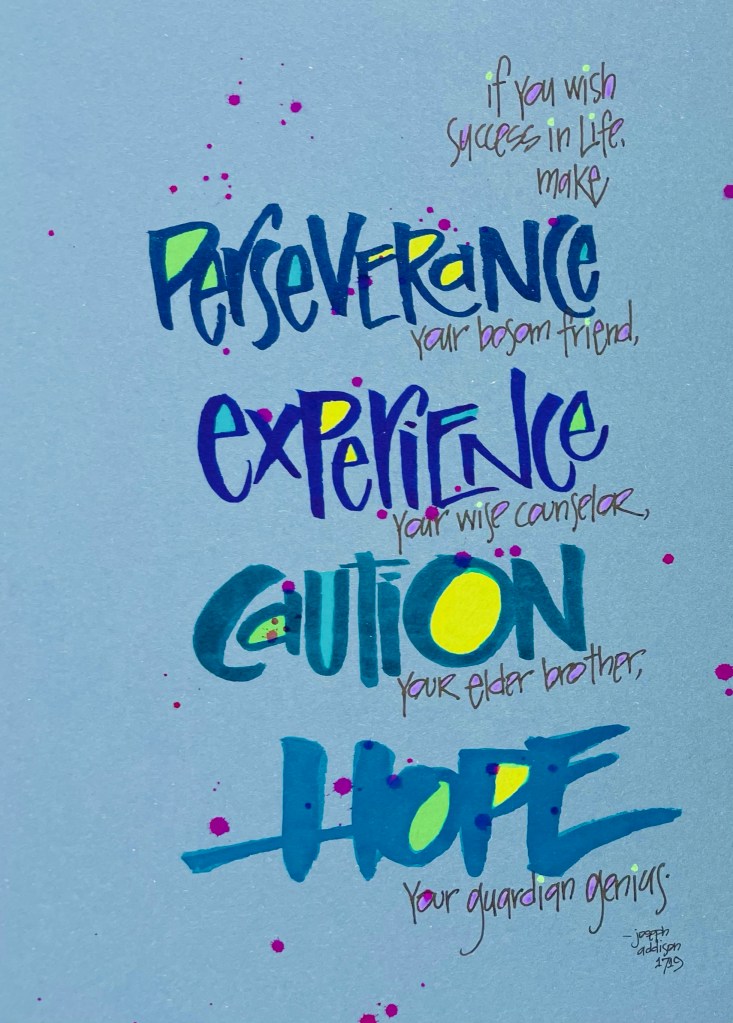 if you wish
success in Life,
make
PerseVERaNce
your bosom friend,
exPeriENce
your wise counselor,
CaUTiON
your elder brother,
HOPE
Your guardian genius.
- joseph
addison
1719